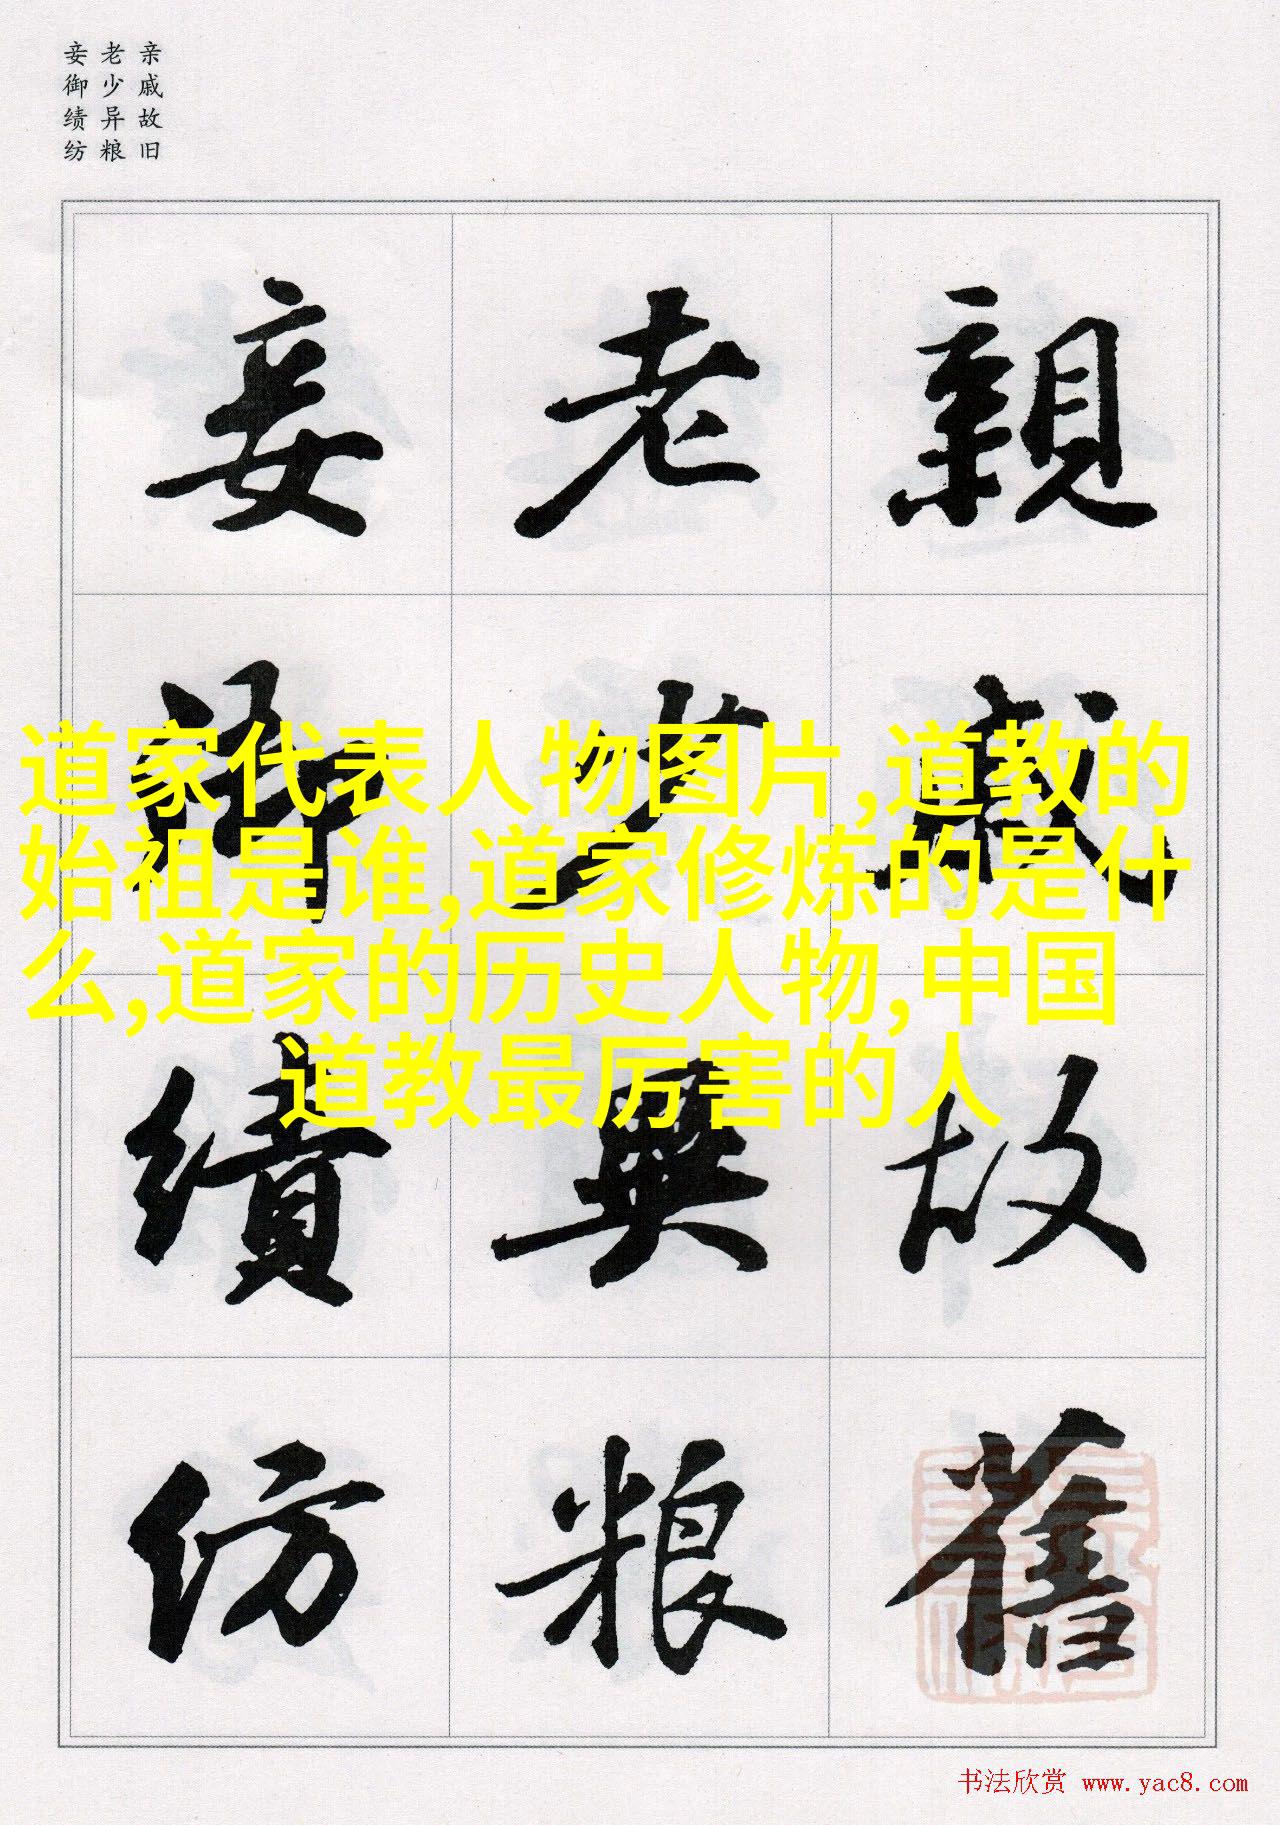 亲戚故旧
老少异粮
妾御绩纺
親戚故舊
老少異粮
妾御績紡
道家代表人物图片,道教的
始祖是谁,道家修炼的是什
么,道家的历史人物,中国
道教最厉害的人
书法欣赏 www.yac8.com